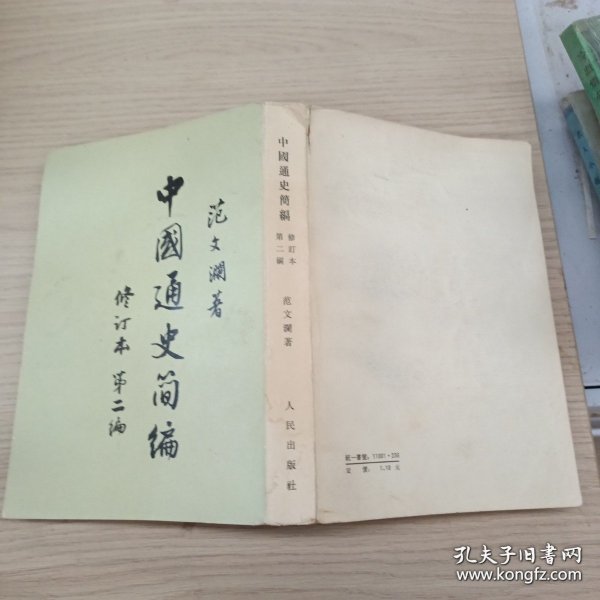 范文瀾著
中國通史简编
修订本 第二编
中國通史簡編
修訂本
第二編
范文瀾著
人民出版社
統一書號：11001·236
定價：1.10元
孔夫子旧书网
www.kongfz.com